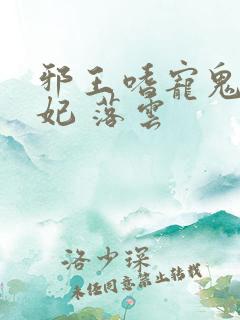 邪王嗜寵鬼
妃 落雲
洛少琛
未经同意禁止转载